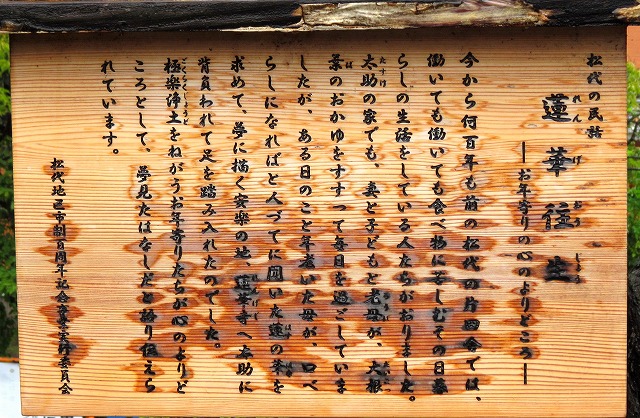 松代の民話
蓮華往生
れんげおうじょう
―お年寄りの心のよりどころ―
今から何百年も前の松代の片田舎では、
働いても働いても食べ物に苦しむその日暮
らしの生活をしている人たちがおりました。
太助の家でも、妻と子どもと老母が、大根
たすけ
葉のおかゆをすすって毎日を過ごしていま
したが、ある日のこと年老いた母が、口べ
らしになればと人づてに聞いた蓮の峯を
求めて、夢に描く安楽の地 蓮華寺へ太助に
背負われて足を踏み入れたのでした。
極楽浄土をねがうお年寄りたちが心のよりど
ごくらくじょうど
ころとして、夢見たはなしだと語り伝えら
れています。
松代地区市制百周年記念事業実行委員会